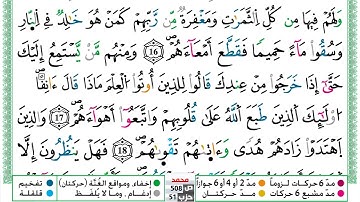 وَلَهُمْ فِيهَا مِن كُلِّ الثَّمَرَٰتِ وَمَغْفِرَةٌ مِّن رَّبِّهِمْ كَمَنْ هُوَ خَٰلِدٌ فِي النَّارِ
وَسُقُوا۟ مَآءً حَمِيمًا فَقَطَّعَ أَمْعَآءَهُمْ 16 وَمِنْهُم مَّن يَسْتَمِعُ إِلَيْكَ
حَتَّىٰٓ إِذَا خَرَجُوا۟ مِنْ عِندِكَ قَالُوا۟ لِلَّذِينَ أُوتُوا۟ الْعِلْمَ مَاذَا قَالَ ءَانِفًا
أُو۟لَٰٓئِكَ الَّذِينَ طَبَعَ اللَّهُ عَلَىٰ قُلُوبِهِمْ وَاتَّبَعُوٓا۟ أَهْوَآءَهُمْ 17 وَالَّذِينَ
اهْتَدَوْا۟ زَادَهُمْ هُدًى وَءَاتَىٰهُمْ تَقْوَىٰهُمْ 18 فَهَلْ يَنظُرُونَ إِلَّا
مد 6 حركات لزوماً مد 2 أو 4 أو 6 جوازاً محمد ص 508 إخفاء، ومواقع الغُنَّة (حركتان) تفخيم
مد مشبع 6 حركات مد حركتان حزب 51 إدغام، وما لا يُلفظ قلقلة